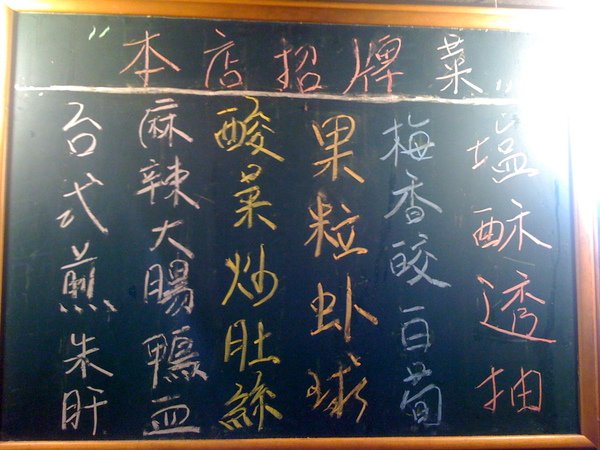 "本店招牌菜"
塩酥透抽
梅香皎白筍
果粒虾球
酸菜炒肚絲
麻辣大腸鴨血
台式煎朱肝